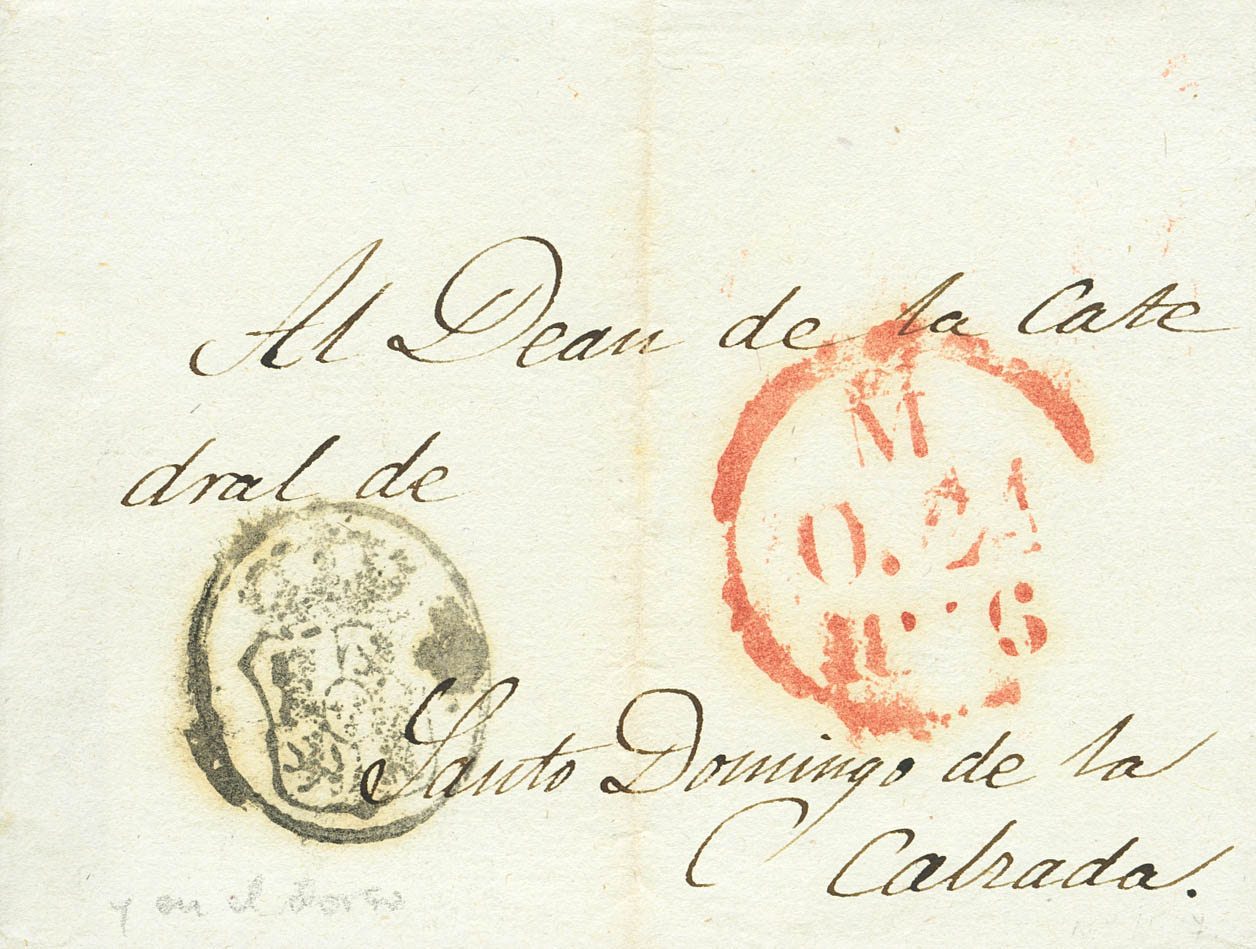 Al Dean de la Cate
dral de
M
O. 21
6
Santo Domingo de la
Calzada.
y en el dorso